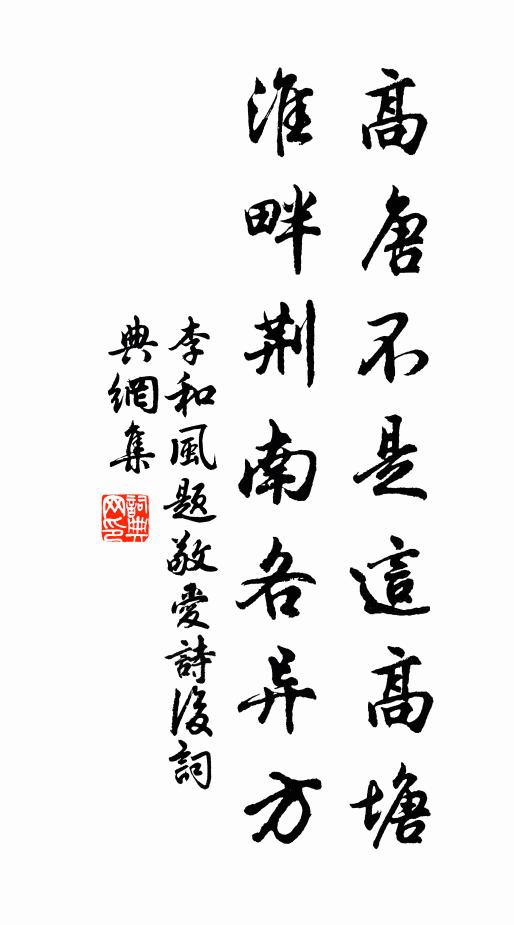 高唐不是這高塘
淮畔荆南各异方
李和風題敬愛詩後詞
典網集
詞典網印